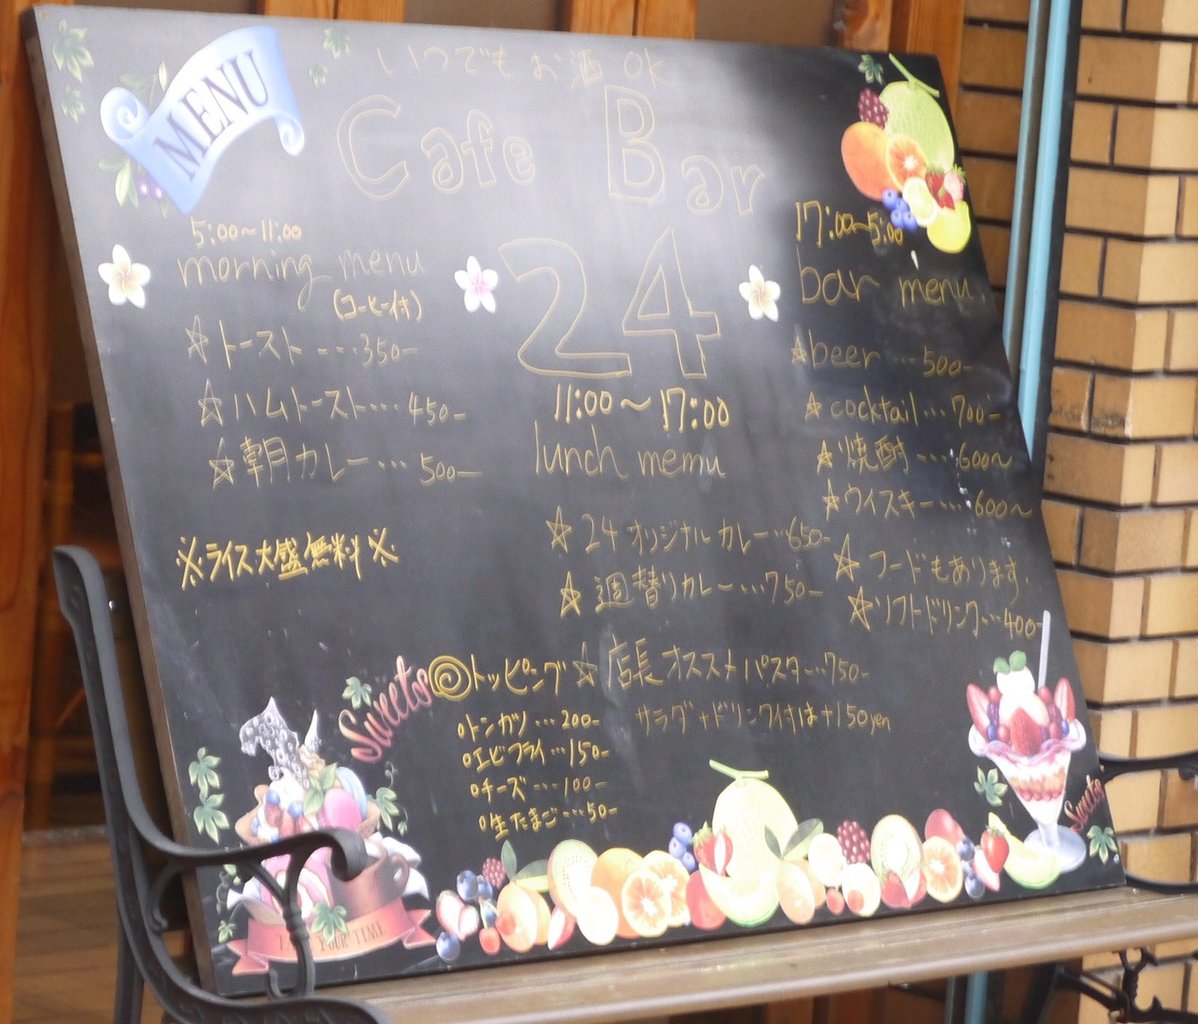 いつでもお酒 OK
MENU
Cafe Bar
24
5:00～11:00
morning menu
(コーヒー付)
☆トースト----350-
☆ハムトースト・・・・450-
☆朝カレー・・・500-
※ライス大盛無料※
11:00～17:00
lunch memu
☆24オリジナルカレー・・650-
☆週替りカレー・・・・750-
☆店長オスストパスタ・・・750-
サラダ+ドリンク付は+150yen
◎トッピング
○トンカツ・・・200-
○エビフライ・・・150-
○チーズ・・・・100-
○生たまご・・・・50-
17:00～5:00
bar menu
☆beer・・・500-
☆cocktail・・・700-
☆焼酎・・・・600～
☆ウィスキー・・・・600～
☆フードもあります
☆ソフトドリンク・・・400-
Sweets
YOUR TIME
Sweets